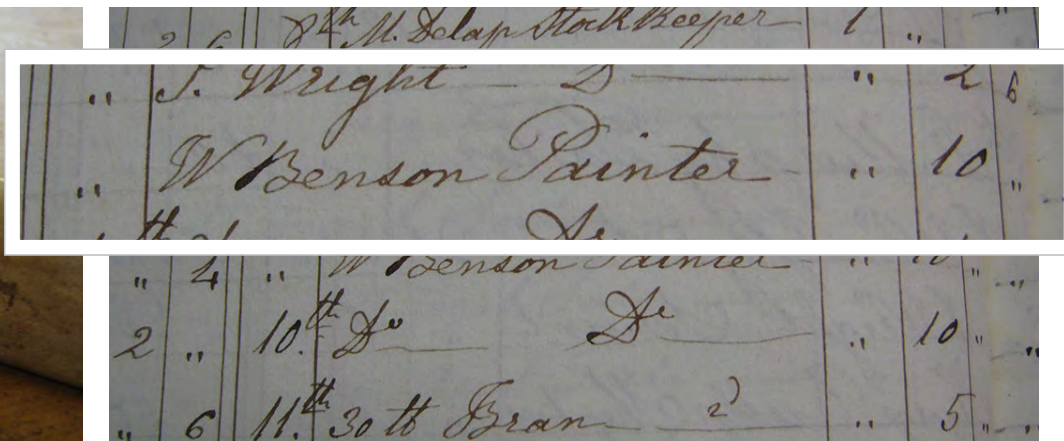 2 6 8th M. Delap Stock Keeper 1 "
" J. Wright D " 2 6
" W Benson Painter " 10 "
" 4 " W Benson Painter " 10 "
2 " 10.th Do Do " 10 " "
" 6 11.th 30 tt Bran 2) " 5 " "